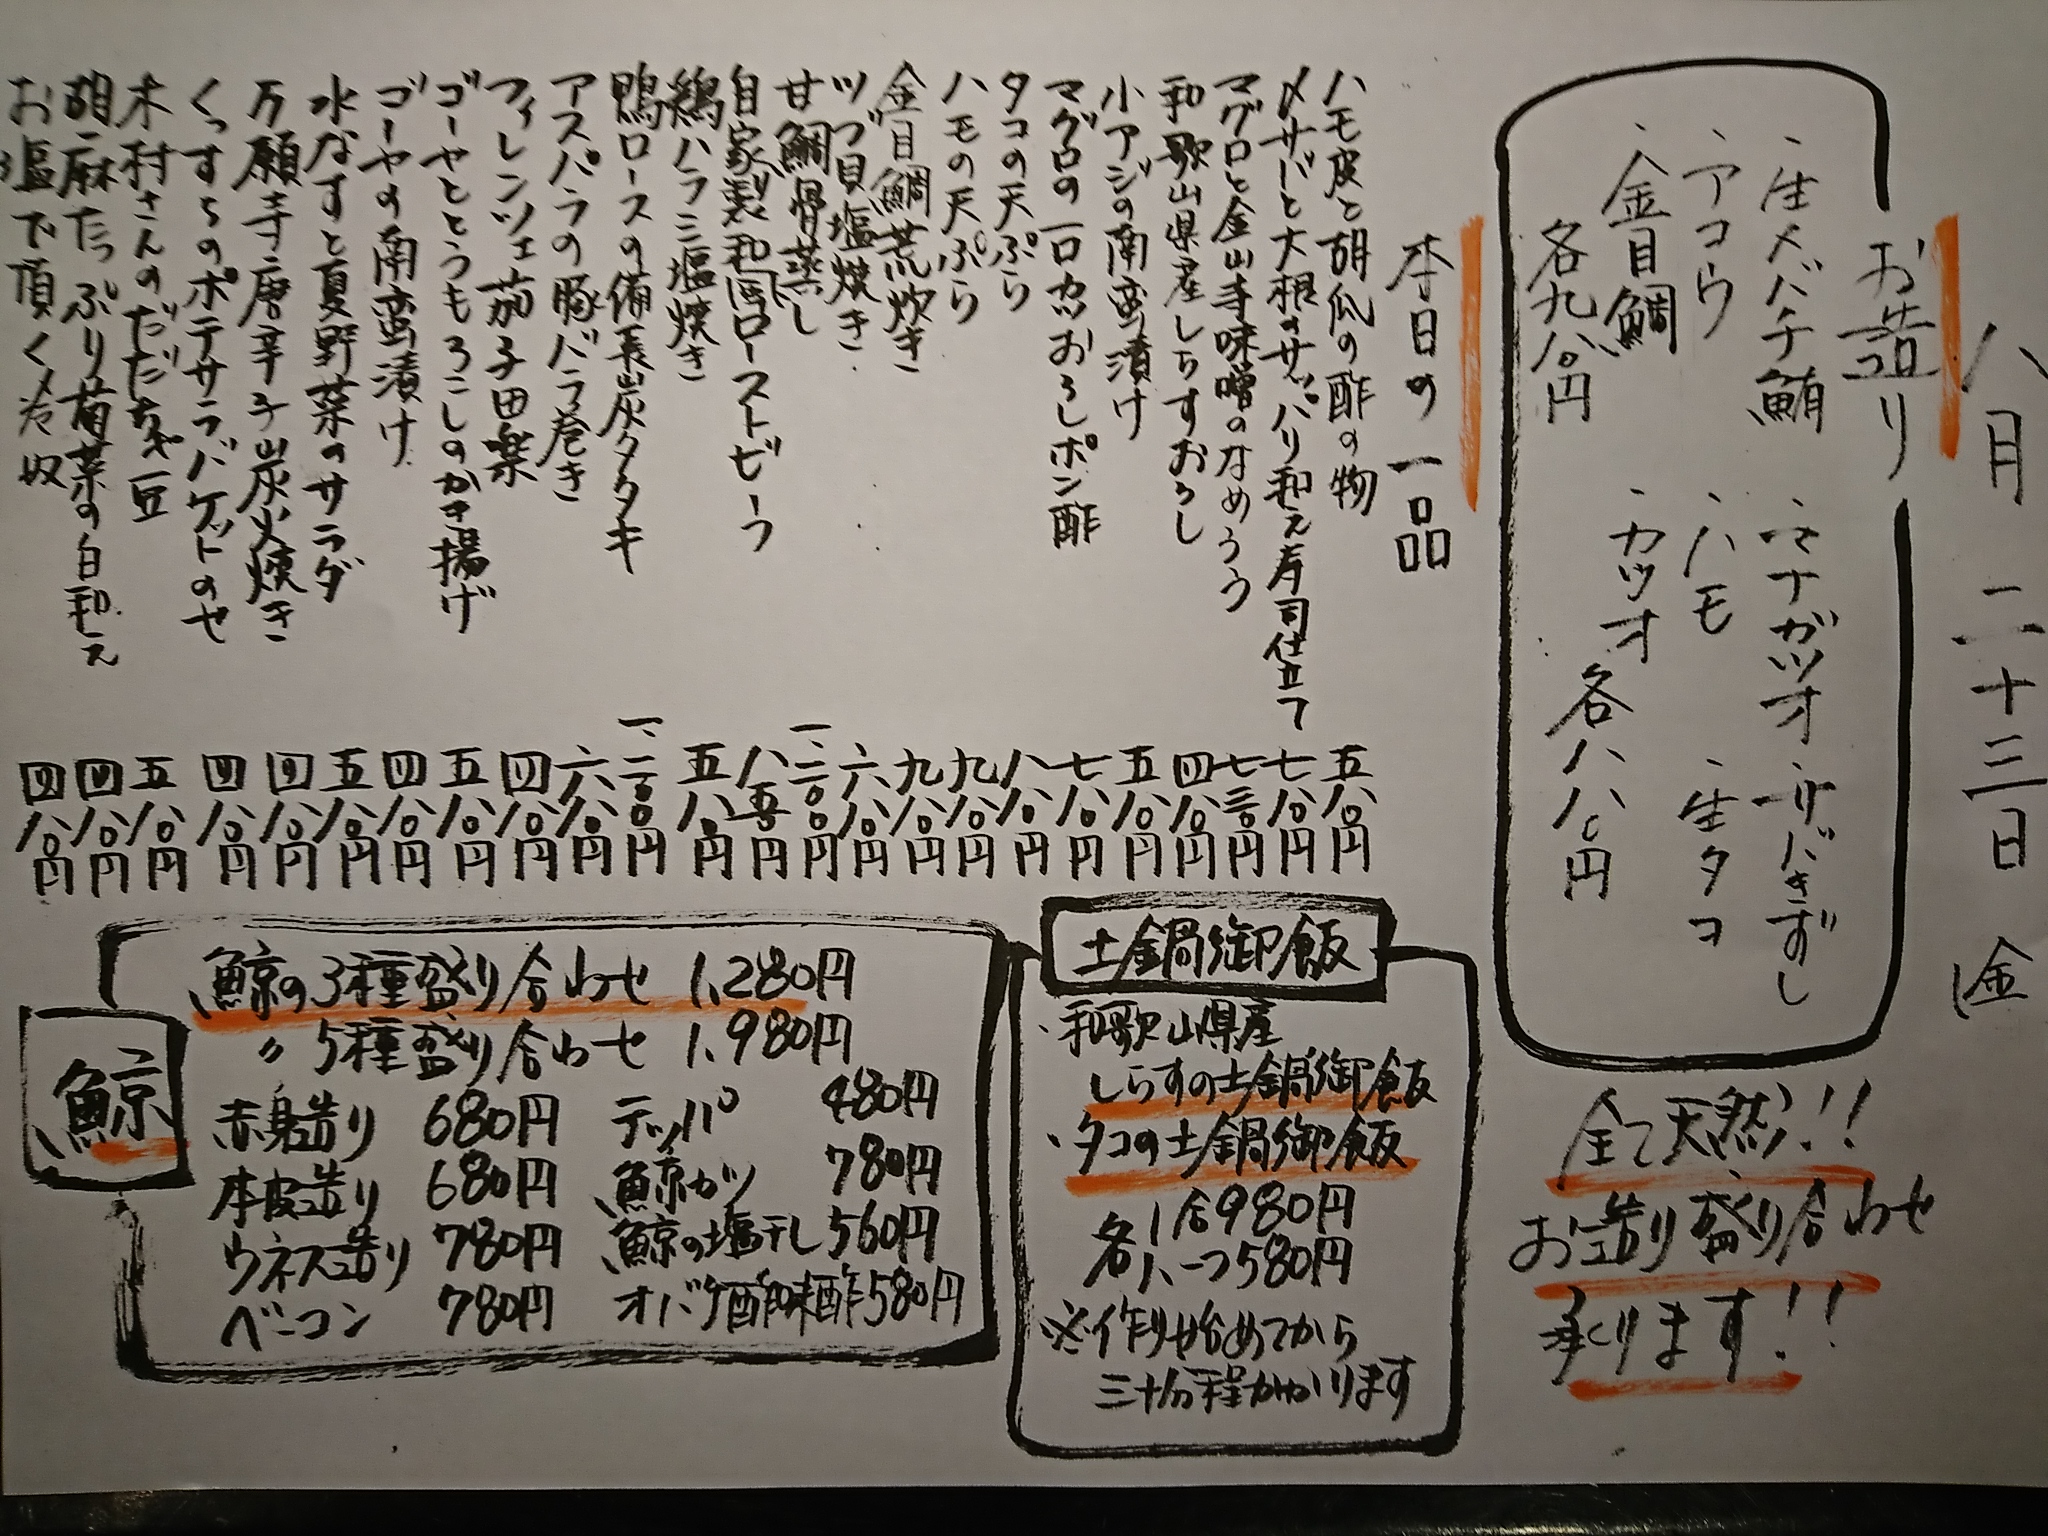 八月二十三日(金)
お造り
・生メバチ鮪
・アコウ
・金目鯛
各九八〇円
・マナガツオ
・サバきずし
・ハモ
・生タコ
・カツオ
各八八〇円
全て天然!!
お造り盛り合わせ
承ります!!
本日の一品
ハモ皮と胡瓜の酢の物 五八〇円
〆サバと大根のサッパリ和え寿司仕立て 七八〇円
マグロと金山寺味噌のなめろう 七三〇円
和歌山県産しらすおろし 四八〇円
小アジの南蛮漬け 五八〇円
マグロの一口カツおろしポン酢 七八〇円
タコの天ぷら 八八〇円
ハモの天ぷら 九八〇円
金目鯛荒炊き 九八〇円
ツブ貝塩焼き 六八〇円
甘鯛骨蒸し 一、二〇〇円
自家製和風ローストビーフ 八五〇円
鶏ハラミ塩焼き 五八〇円
鴨ロースの備長炭タタキ 一、二〇〇円
アスパラの豚バラ巻き 六八〇円
フィレンツェ茄子田楽 四八〇円
ゴーヤととうもろこしのかき揚げ 五八〇円
ゴーヤの南蛮漬け 四八〇円
水なすと夏野菜のサラダ 五八〇円
万願寺唐辛子炭火焼き 四八〇円
くっすらのポテサラバケットのせ 四八〇円
木村さんのだだちゃ豆 五八〇円
胡麻たっぷり菊菜の白和え 四八〇円
お塩で頂く冷奴 四八〇円
土鍋御飯
・和歌山県産
しらすの土鍋御飯
・タコの土鍋御飯
各1合980円
各ハーフ580円
※作り始めてから
三十分程かかります
鯨
鯨の3種盛り合わせ 1,280円
〃5種盛り合わせ 1,980円
赤身造り 680円
本皮造り 680円
ウネス造り 780円
ベーコン 780円
テッパ 480円
鯨カツ 780円
鯨の塩干し 560円
オバケ酢味噌 580円